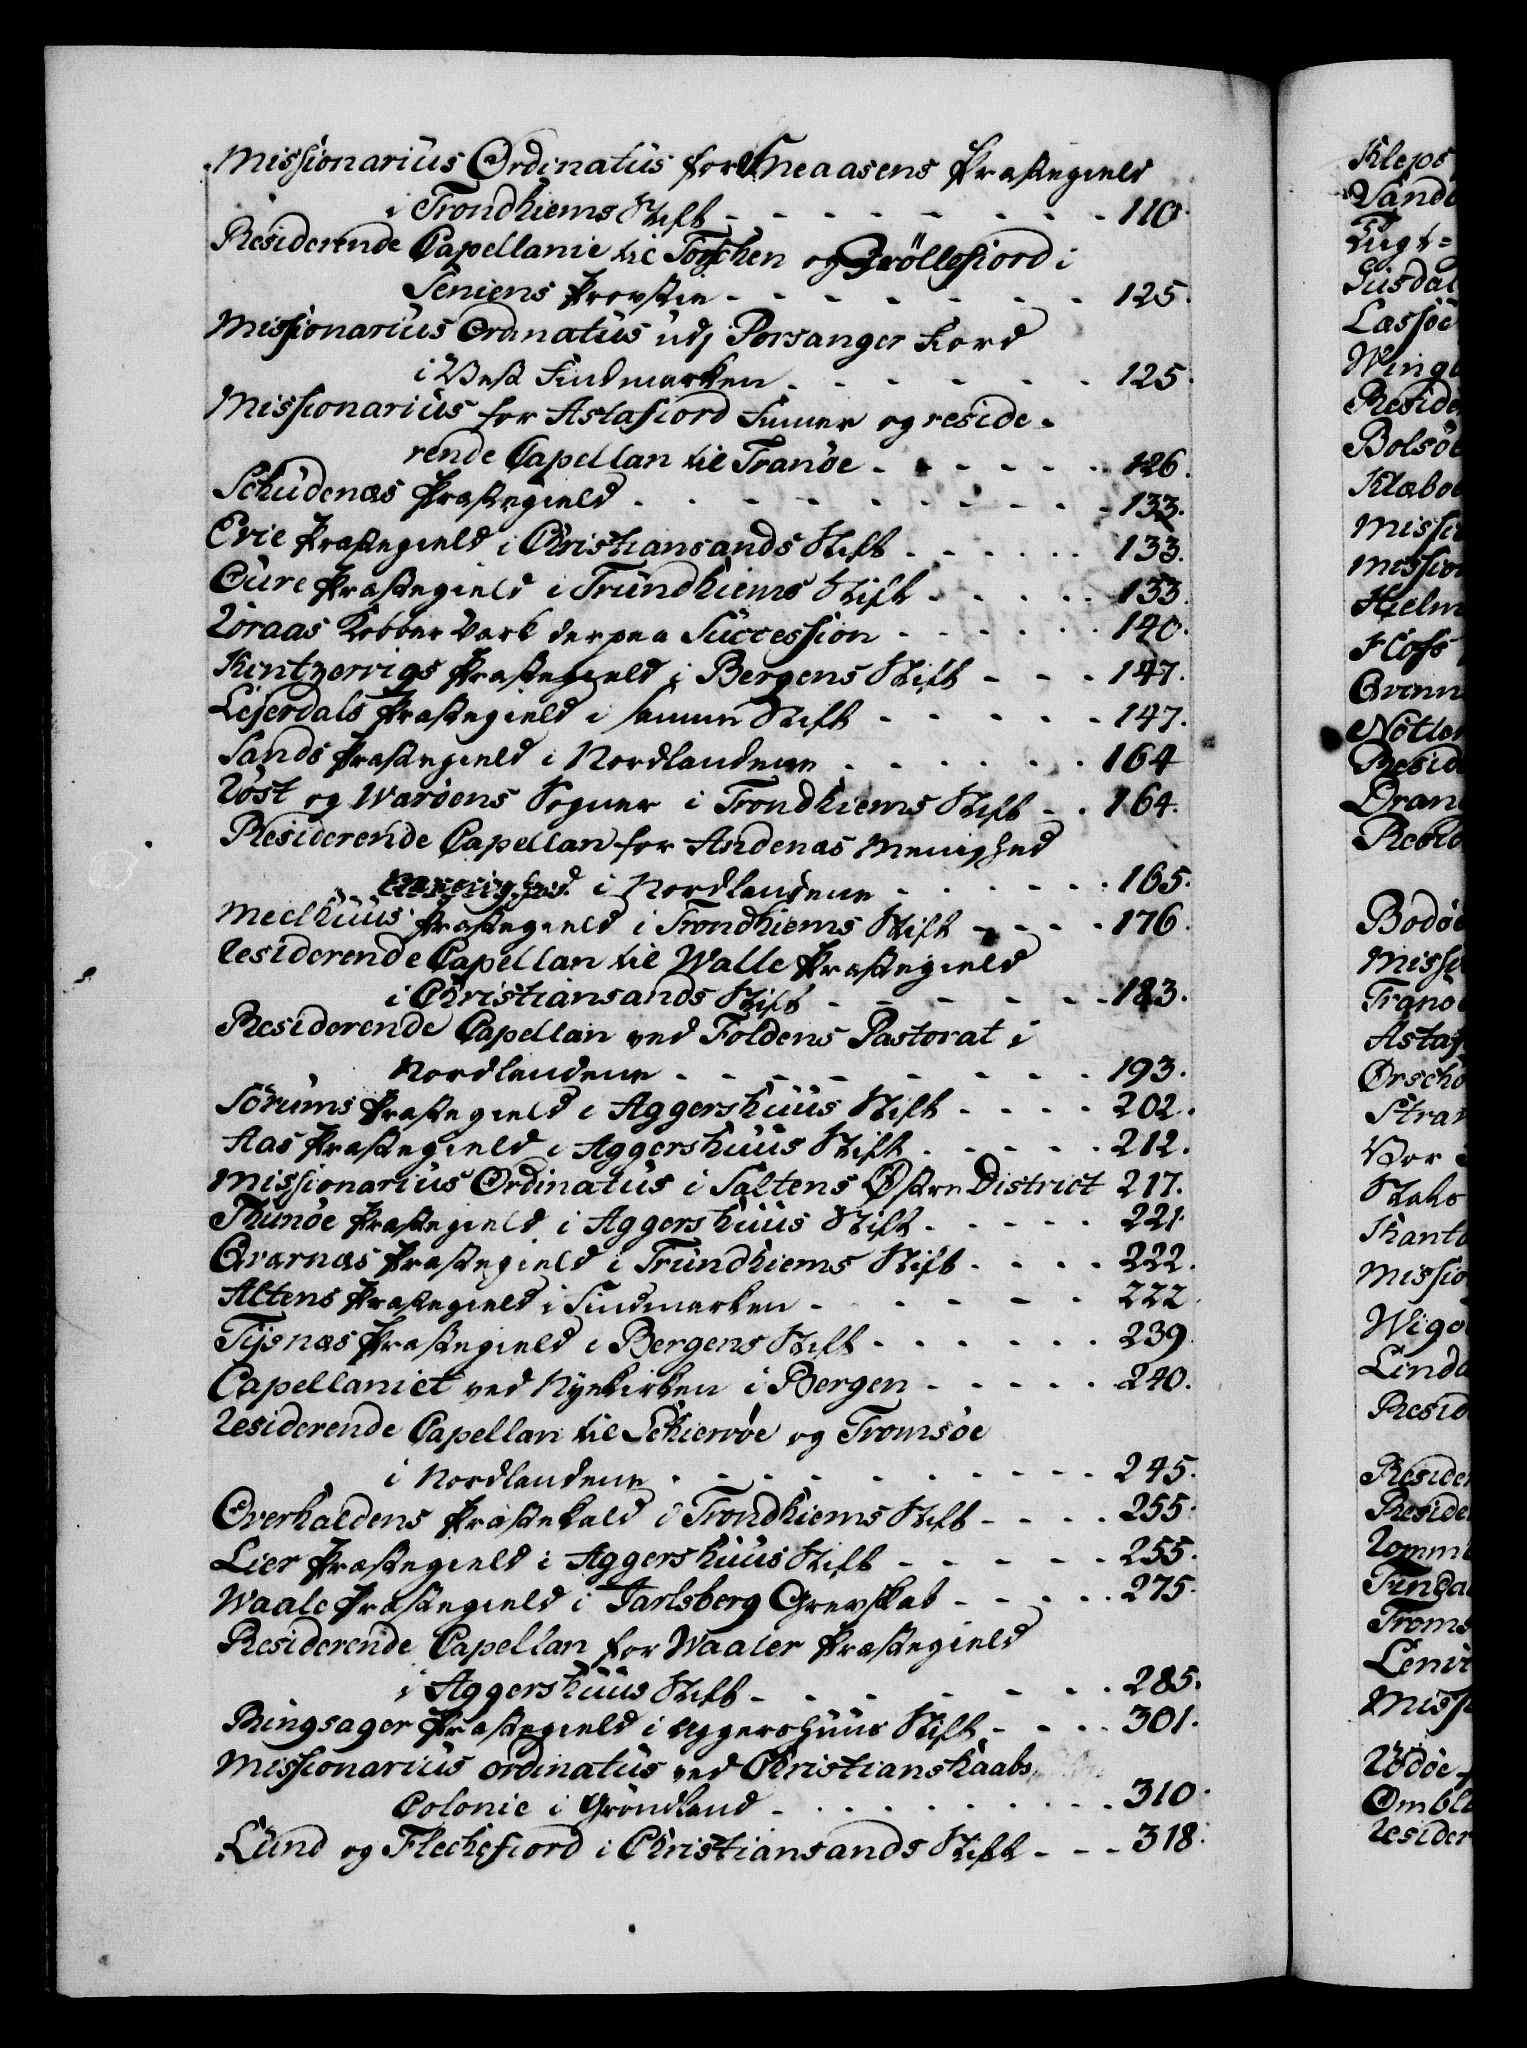 Missionarius Ordinatus for Sneaasens Præstegield
i Trondhiems Stift - - - - - - - - 110.
Residerende Capellanie til Torschen og Gröllefiord i
Seniens Provstie - - - - - - - - 125.
Missionarius Ordinatus udj Porsanger Fiord
i Vest Findmarken - - - - - - - 125.
Missionarius for Astafiord Finner og reside-
rende Capellan til Tranöe - - - - - - 126.
Schudenæs Præstegield - - - - - - - - - 133.
Evie Præstegield i Christiansands Stift - - - - - - 133.
Oure Præstegield i Trundhiems Stift - - - - - 133.
Röraas Kobber Verk der paa Succession - - - - - - 140.
Kintzervigs Præstegield i Bergens Stift - - - 147.
Lejerdals Præstegield i samme Stift - - - - - 147.
Sands Præstegield i Nordlandene - - - - - - 164
Röst og Waröens Sogner i Trondhiems Stift - - 164.
Residerende Capellan for Andenæs Menighed
i Nordlandene - - - - - - 165.
Meelhuus Præstegield i Trondhiems Stift - - - - 176.
Residerende Capellan til Walle Præstegield
i Christiansands Stift - - - - - - - 183.
Residerende Capellan ved Foldens Pastorat i
Nordlandene - - - - - - - - - 193.
Sörums Præstegield i Aggershuus Stift - - - - 202.
Aas Præstegield i Aggershuus Stift - - - - - 212.
Missionarius Ordinatus i Saltens Østre District 217.
Thunöe Præstegield i Aggershuus Stift - - - - - 221.
Qværnæs Præstegield i Trundhiems Stift - - - - 222.
Altens Præstegield i Findmarken - - - - - - 222.
Tysnæs Præstegield i Bergens Stift - - - - - - 239.
Capellaniet ved Nyekirken i Bergen - - - - - 240.
Residerende Capellan til Schiervöe og Tromsöe
i Nordlandene - - - - - - - - - - 245.
Overhaldens Præstekald i Trondhiems Stift - - - - 255.
Lier Præstegield i Aggershuus Stift - - - - - 255.
Waale Præstegield i Jarlsberg Grevskab - - - - - 275.
Residerende Capellan for Waaler Præstegield
i Aggershuus Stift - - - - - - - - 285.
Ringsager Præstegield i Aggershuus Stift - - - - 301.
Missionarius ordinatus ved Christianshaabs
Colonie i Grönland - - - - - - - - - 310.
Lund og Flechefiord i Christiansands Stift - - - 318.